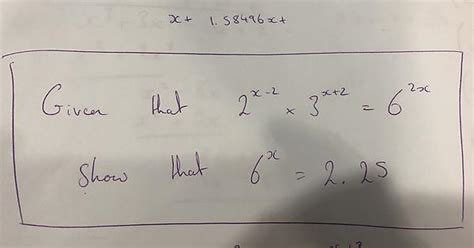 x+ 1.58496x+
Given that 2^{x-2} × 3^{x+2} = 6^{2x}
Show that 6^{x} = 2.25